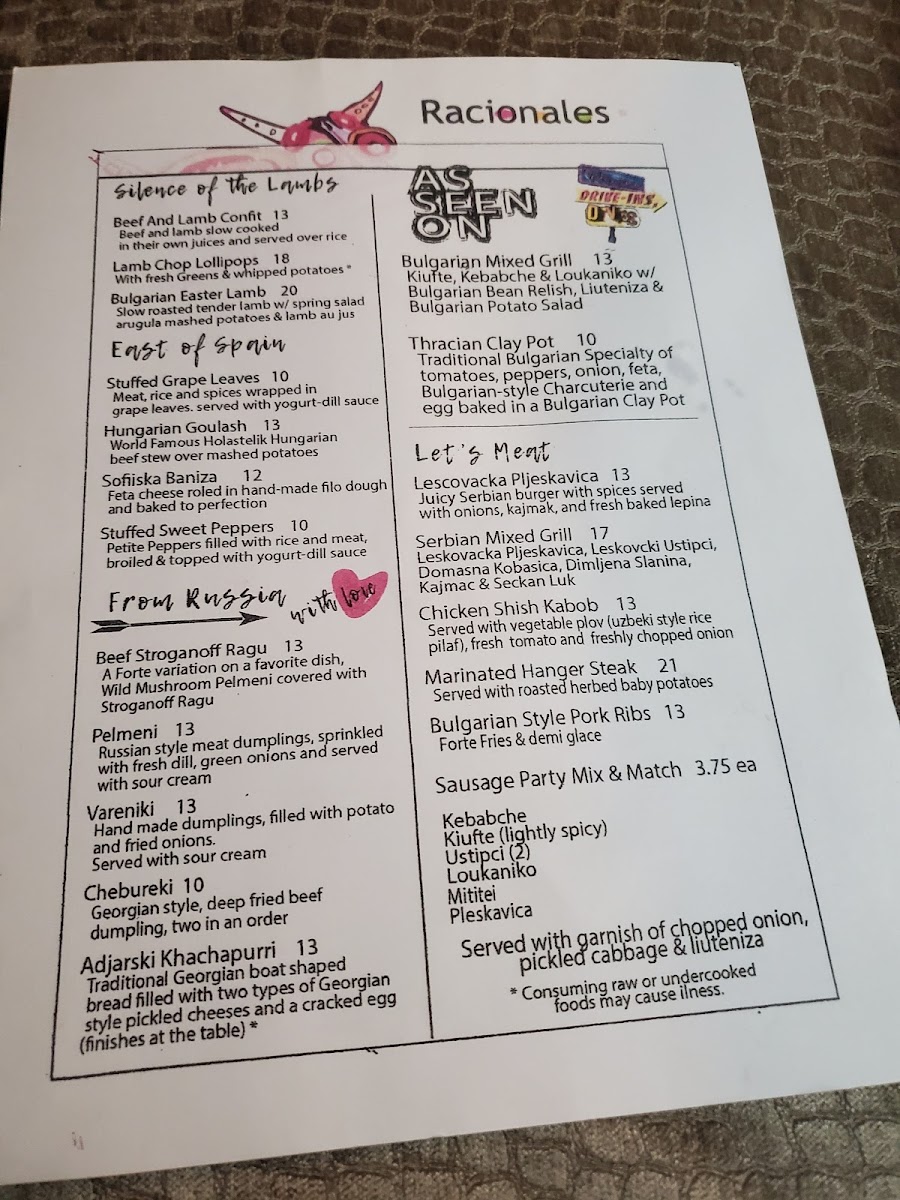 Racionales
Silence of the Lambs
Beef And Lamb Confit 13
Beef and lamb slow cooked
in their own juices and served over rice
Lamb Chop Lollipops 18
With fresh Greens & whipped potatoes *
Bulgarian Easter Lamb 20
Slow roasted tender lamb w/ spring salad
arugula mashed potatoes & lamb au jus
East of Spain
Stuffed Grape Leaves 10
Meat, rice and spices wrapped in
grape leaves. served with yogurt-dill sauce
Hungarian Goulash 13
World Famous Holastelik Hungarian
beef stew over mashed potatoes
Sofiiska Baniza 12
Feta cheese roled in hand-made filo dough
and baked to perfection
Stuffed Sweet Peppers 10
Petite Peppers filled with rice and meat,
broiled & topped with yogurt-dill sauce
From Russia with love
Beef Stroganoff Ragu 13
A Forte variation on a favorite dish,
Wild Mushroom Pelmeni covered with
Stroganoff Ragu
Pelmeni 13
Russian style meat dumplings, sprinkled
with fresh dill, green onions and served
with sour cream
Vareniki 13
Hand made dumplings, filled with potato
and fried onions.
Served with sour cream
Chebureki 10
Georgian style, deep fried beef
dumpling, two in an order
Adjarski Khachapurri 13
Traditional Georgian boat shaped
bread filled with two types of Georgian
style pickled cheeses and a cracked egg
(finishes at the table) *
AS
SEEN
ON
DRIVE-INS,
Bulgarian Mixed Grill 13
Kiufte, Kebabche & Loukaniko w/
Bulgarian Bean Relish, Liuteniza &
Bulgarian Potato Salad
Thracian Clay Pot 10
Traditional Bulgarian Specialty of
tomatoes, peppers, onion, feta,
Bulgarian-style Charcuterie and
egg baked in a Bulgarian Clay Pot
Let's Meat
Lescovacka Pljeskavica 13
Juicy Serbian burger with spices served
with onions, kajmak, and fresh baked lepina
Serbian Mixed Grill 17
Leskovacka Pljeskavica, Leskovcki Ustipci,
Domasna Kobasica, Dimljena Slanina,
Kajmac & Seckan Luk
Chicken Shish Kabob 13
Served with vegetable plov (uzbeki style rice
pilaf), fresh tomato and freshly chopped onion
Marinated Hanger Steak 21
Served with roasted herbed baby potatoes
Bulgarian Style Pork Ribs 13
Forte Fries & demi glace
Sausage Party Mix & Match 3.75 ea
Kebabche
Kiufte (lightly spicy)
Ustipci (2)
Loukaniko
Mititei
Pleskavica
Served with garnish of chopped onion,
pickled cabbage & liuteniza
* Consuming raw or undercooked
foods may cause ilness.